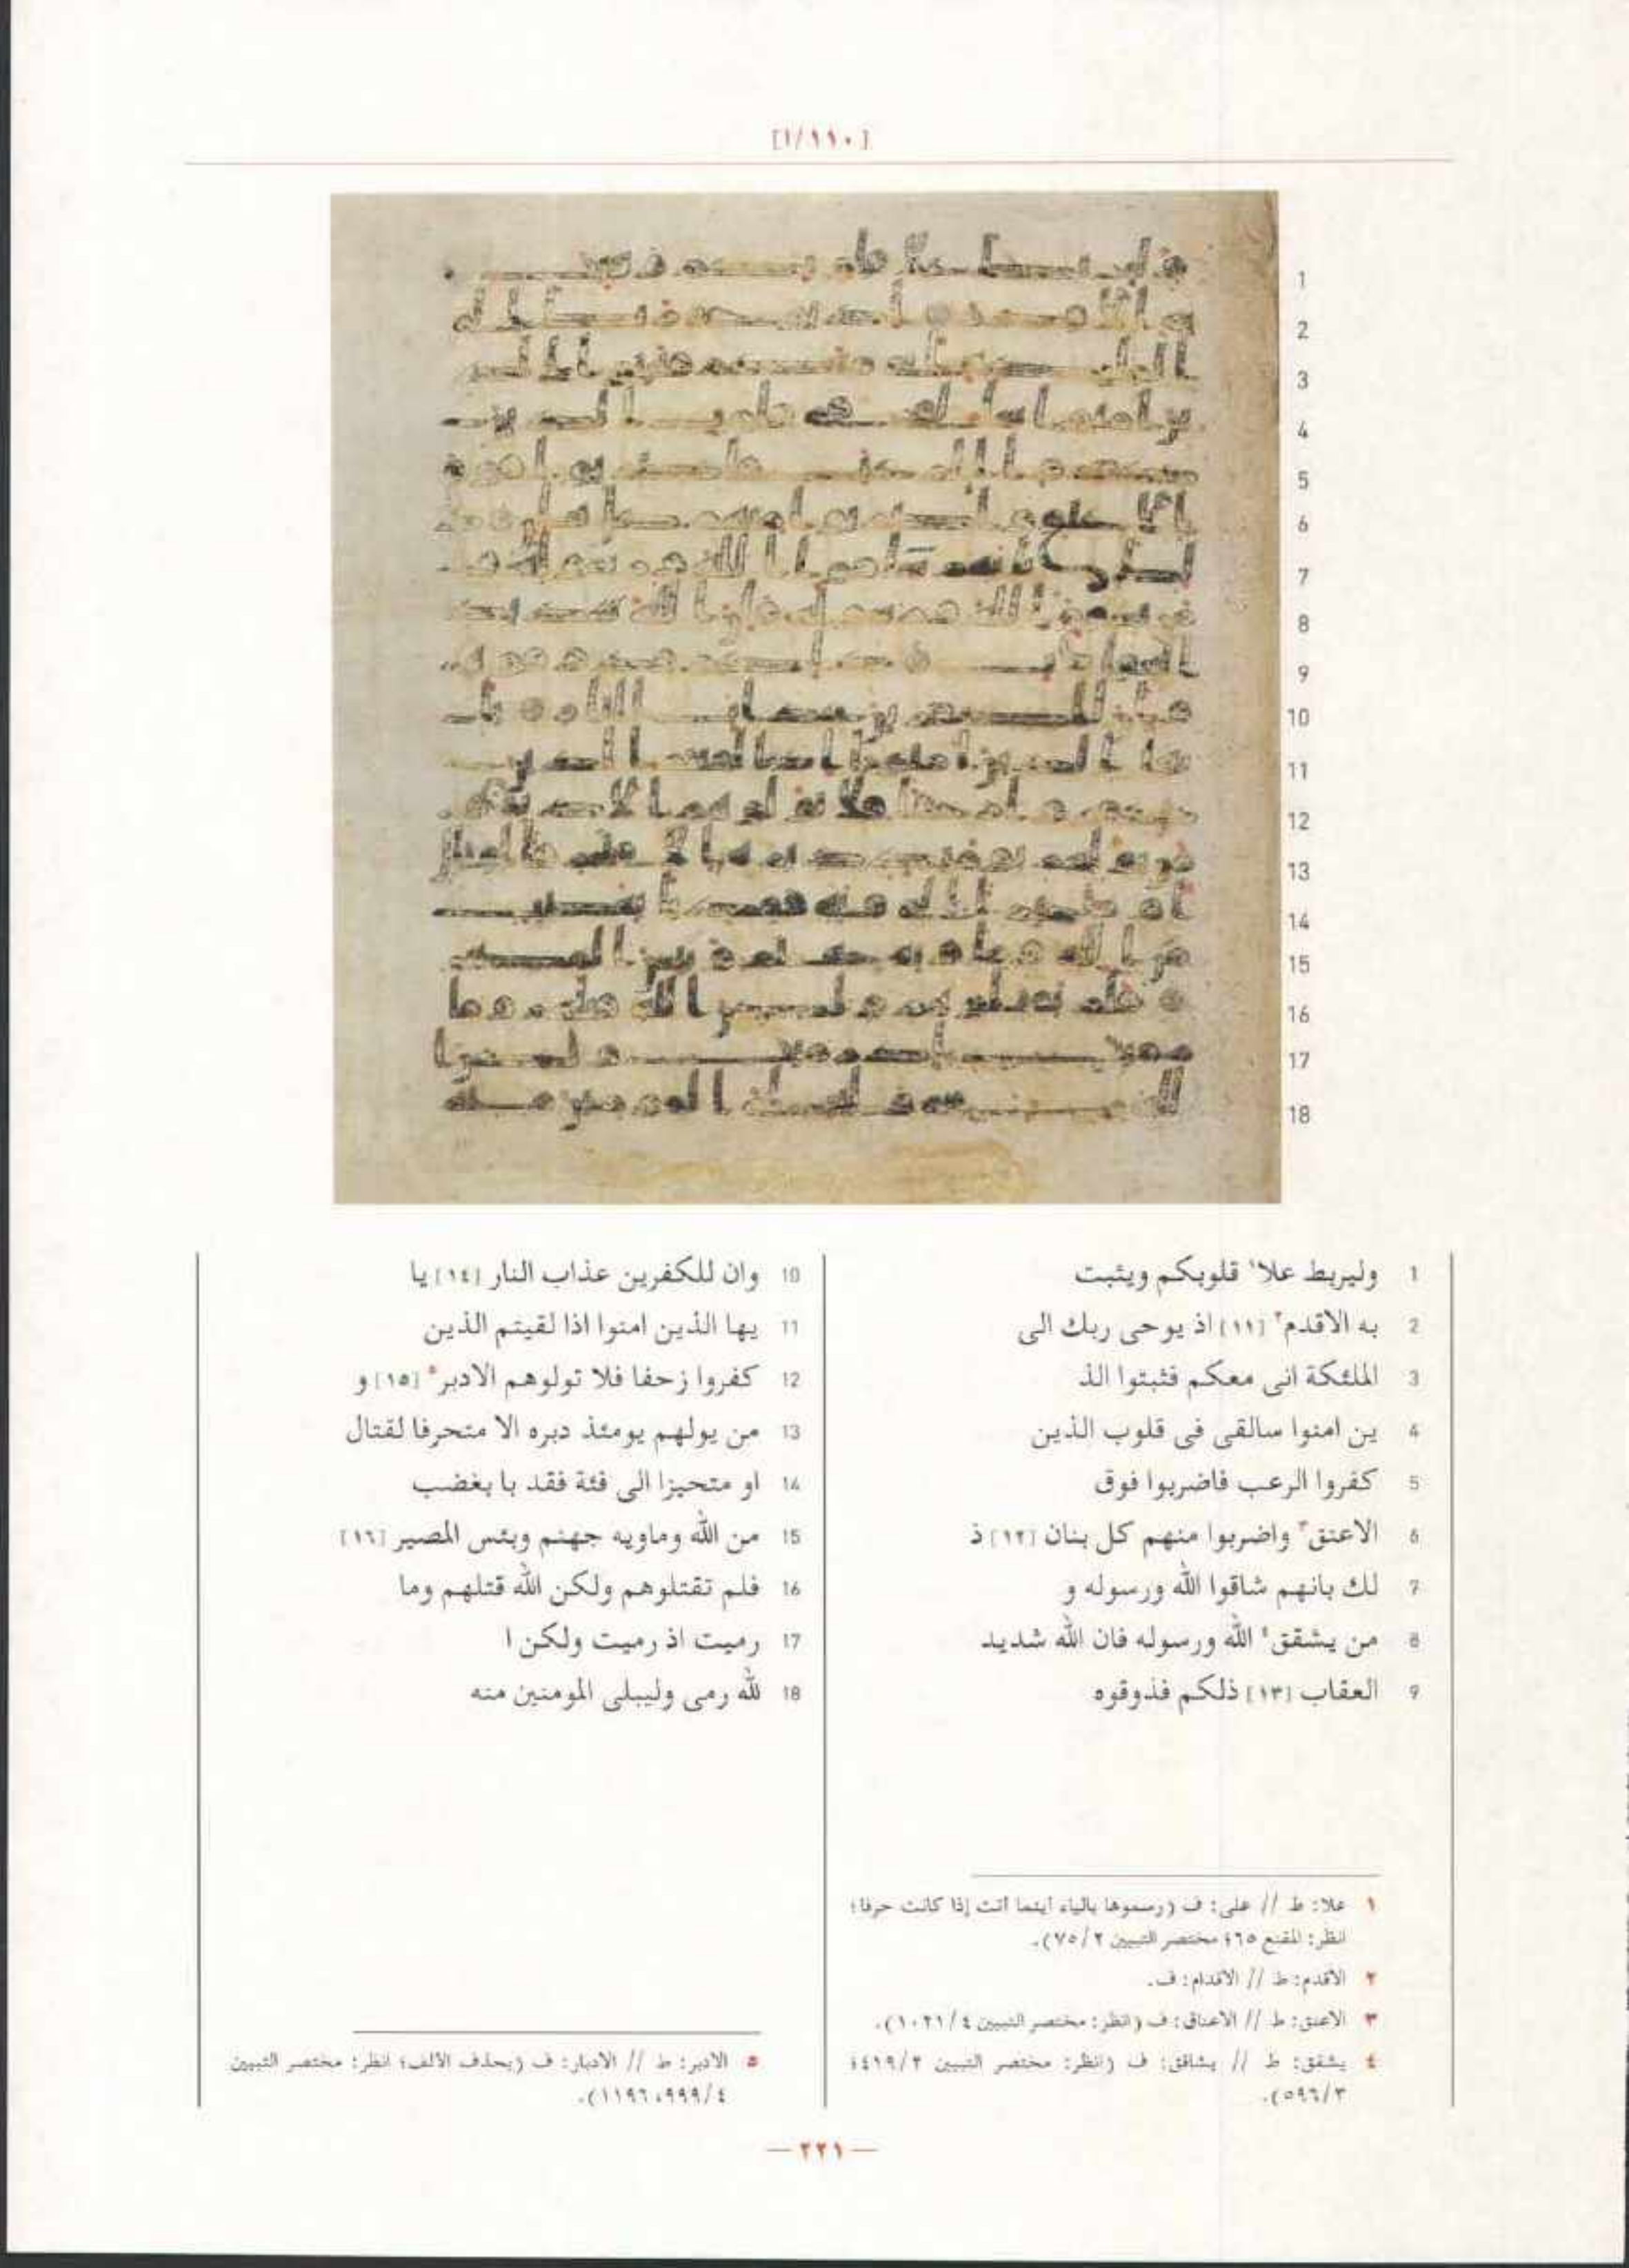 [١/١١٠]
1 وليربط علا١ قلوبكم ويثبت
2 به الاقدم٢ [١١] اذ يوحى ربك الى
3 الملئكة انى معكم فثبتوا الذ
4 ين امنوا سالقى فى قلوب الذين
5 كفروا الرعب فاضربوا فوق
6 الاعنق٣ واضربوا منهم كل بنان [١٢] ذ
7 لك بانهم شاقوا الله ورسوله و
8 من يشقق٤ الله ورسوله فان الله شديد
9 العقاب [١٣] ذلكم فذوقوه
10 وان للكفرين عذاب النار [١٤] يا
11 يها الذين امنوا اذا لقيتم الذين
12 كفروا زحفا فلا تولوهم الادبر٥ [١٥] و
13 من يولهم يومئذ دبره الا متحرفا لقتال
14 او متحيزا الى فئة فقد با بغضب
15 من الله وماويه جهنم وبئس المصير [١٦]
16 فلم تقتلوهم ولكن الله قتلهم وما
17 رميت اذ رميت ولكن ا
18 لله رمى وليبلى المومنين منه
١ علا: ط // على: ف (رسموها بالياء أينما أتت إذا كانت حرفا؛
انظر: المقنع ٦٥؛ مختصر التبيين ٧٥/٢).
٢ الاقدم: ط // الاقدام: ف.
٣ الاعنق: ط // الاعناق: ف (انظر: مختصر التبيين ١٠٢١/٤).
٤ يشقق: ط // يشاقق: ف (انظر: مختصر التبيين ٤١٩/٢؛
٥٩٦/٣).
٥ الادبر: ط // الادبار: ف (بحذف الألف؛ انظر: مختصر التبيين
٩٩٩/٤، ١١٩٦).
— ٢٢١ —